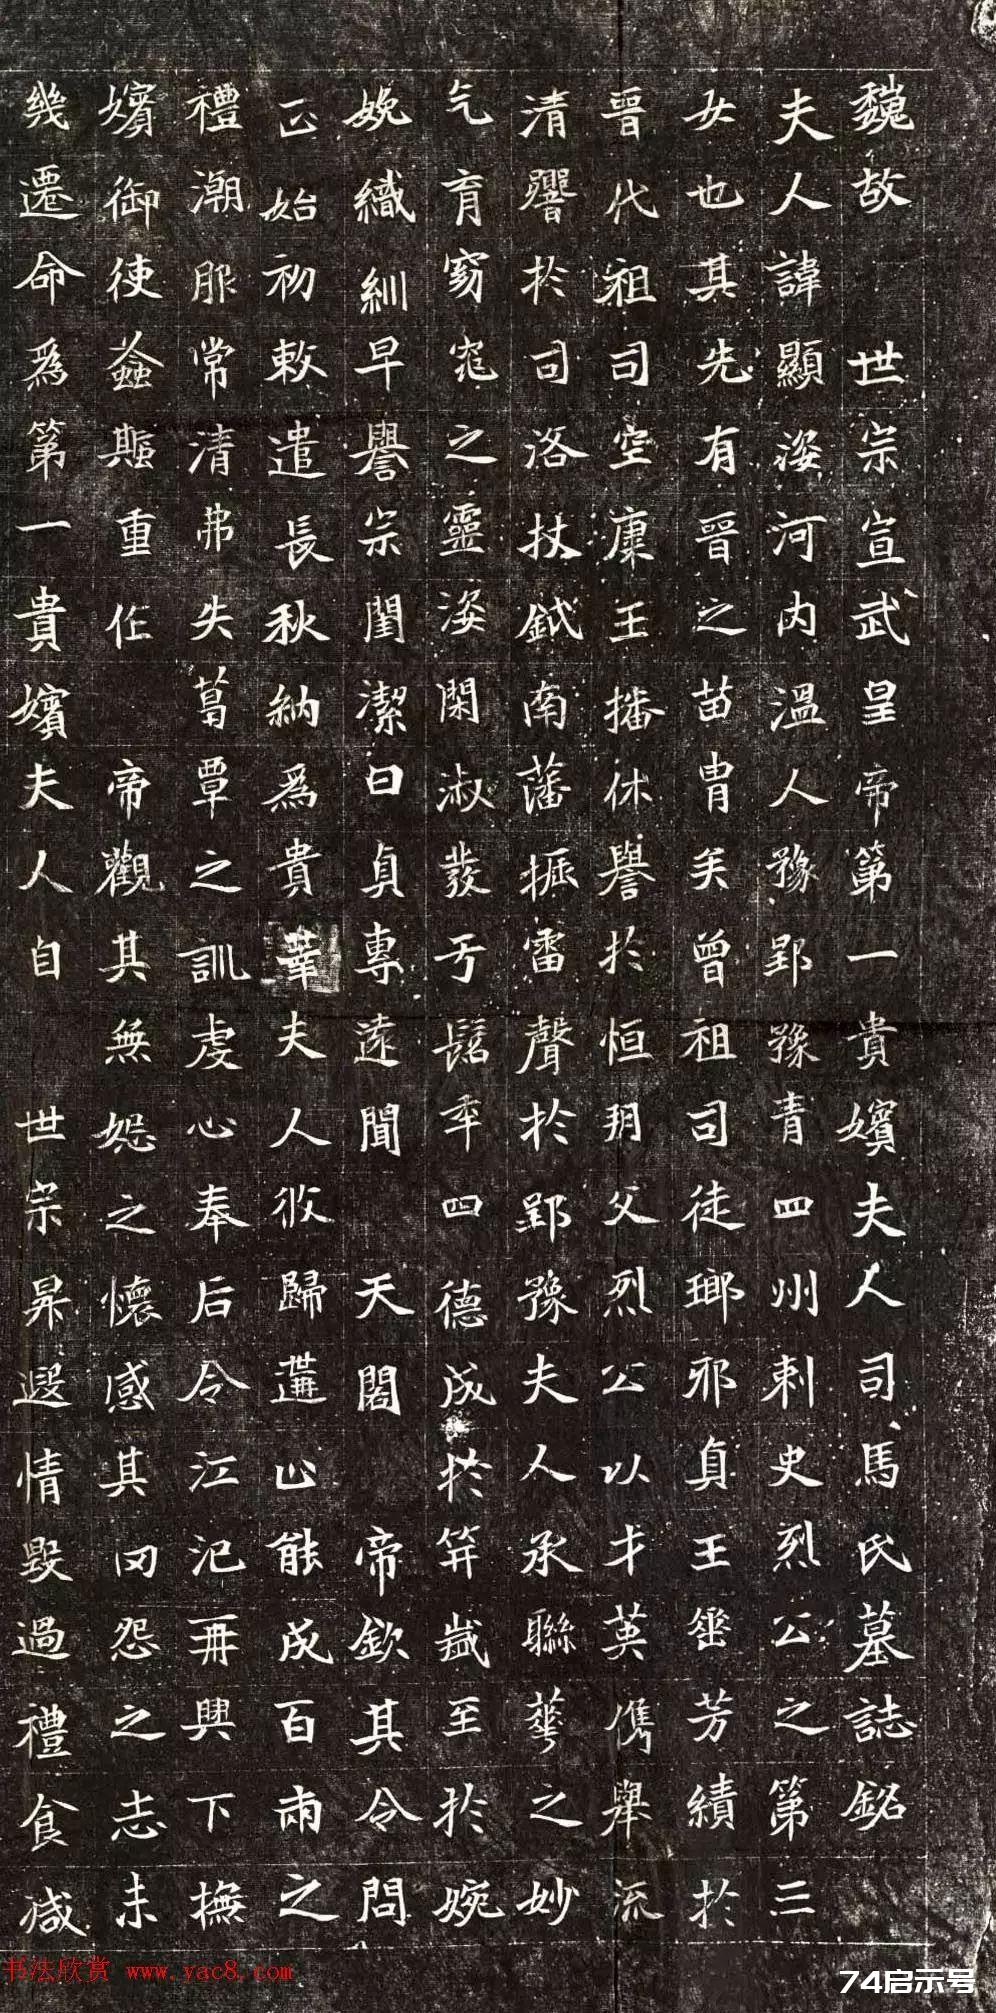 魏故　世宗宣武皇帝第一貴嬪夫人司馬氏墓誌銘
夫人諱顯姿河內溫人豫郢豫青四州刺史烈公之第三
女也其先有晉之苗胄矣曾祖司徒瑯邪貞王垂芳績於
晉代祖司空康王播休譽於恒朔父烈公以才英儁舉流
清響於司洛杖鉞南藩振雷聲於郢豫夫人承聯華之妙
气育窈窕之靈姿閑淑發于髫年四德成於笄歲至於婉
娩織紃早譽宗閨潔白貞專遠聞　天閣　帝欽其令問
正始初敕遣長秋納為貴華夫人攸歸遘止能成百兩之
禮潮服常清弗失葛覃之訓虔心奉后令江汜再興下撫
嬪御使螽斯重作　帝觀其無妬之懷感其罔怨之志未
幾遷命為第一貴嬪夫人自　世宗昇遐情毀過禮食減
书法欣赏 www.yac8.com
74启示号